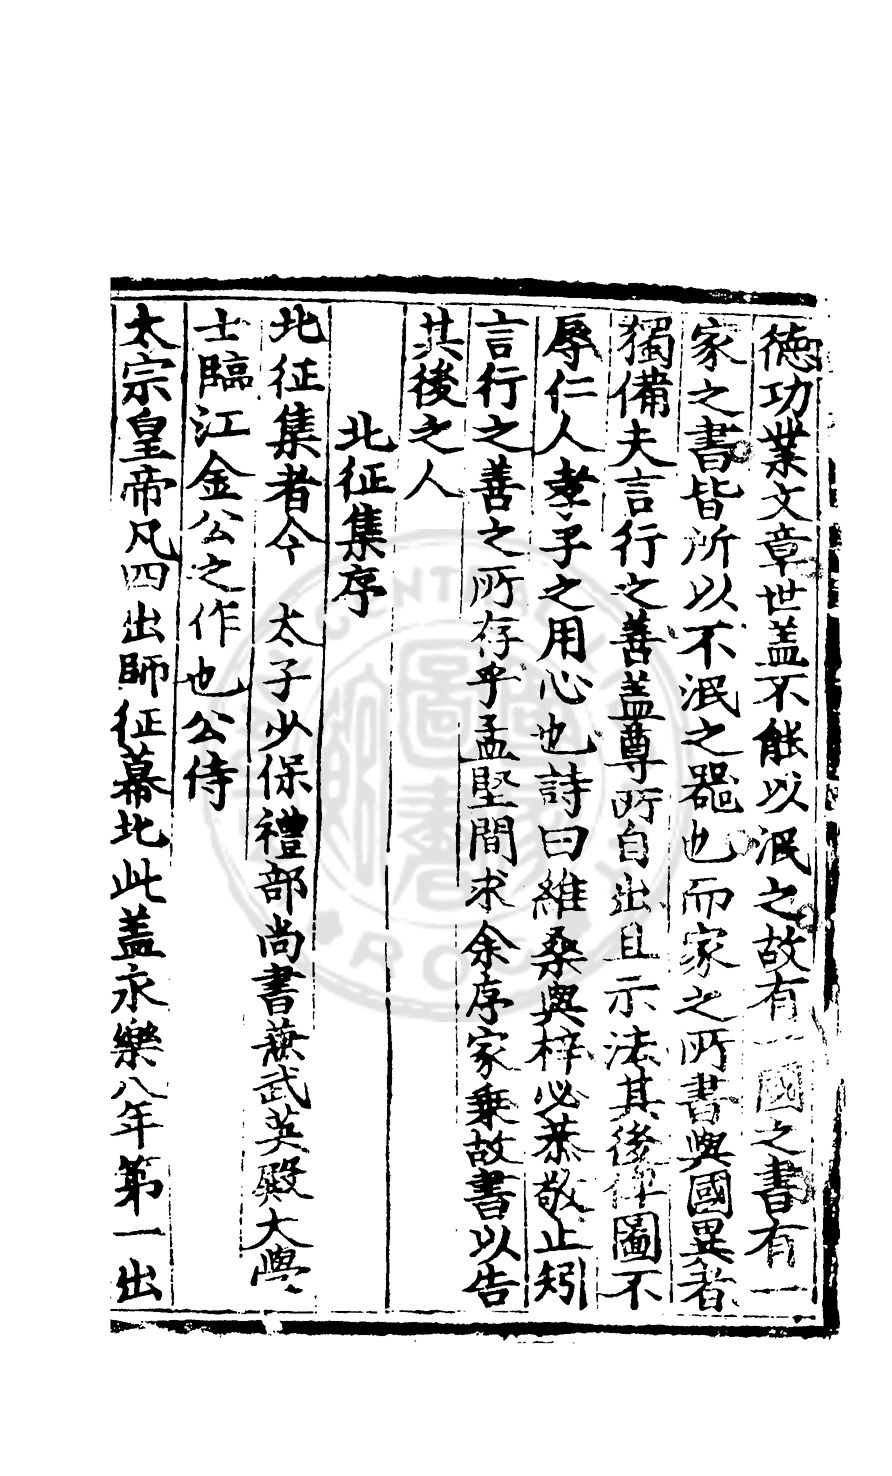 德功業文章世盖不能以泯之故有一國之書有一
家之書皆所以不泯之器也而家之所書與國異者
獨備夫言行之善盖尊所自出且示法其後俾圖不
辱仁人孝子之用心也詩曰維桑與梓必恭敬止矧
言行之善之所存乎孟堅間求余序家乗故書以告
其後之人
北征集序
北征集者今 太子少保禮部尚書兼武英殿大學
士臨江金公之作也公侍
太宗皇帝凡四出師征幕北此盖永樂八年第一出